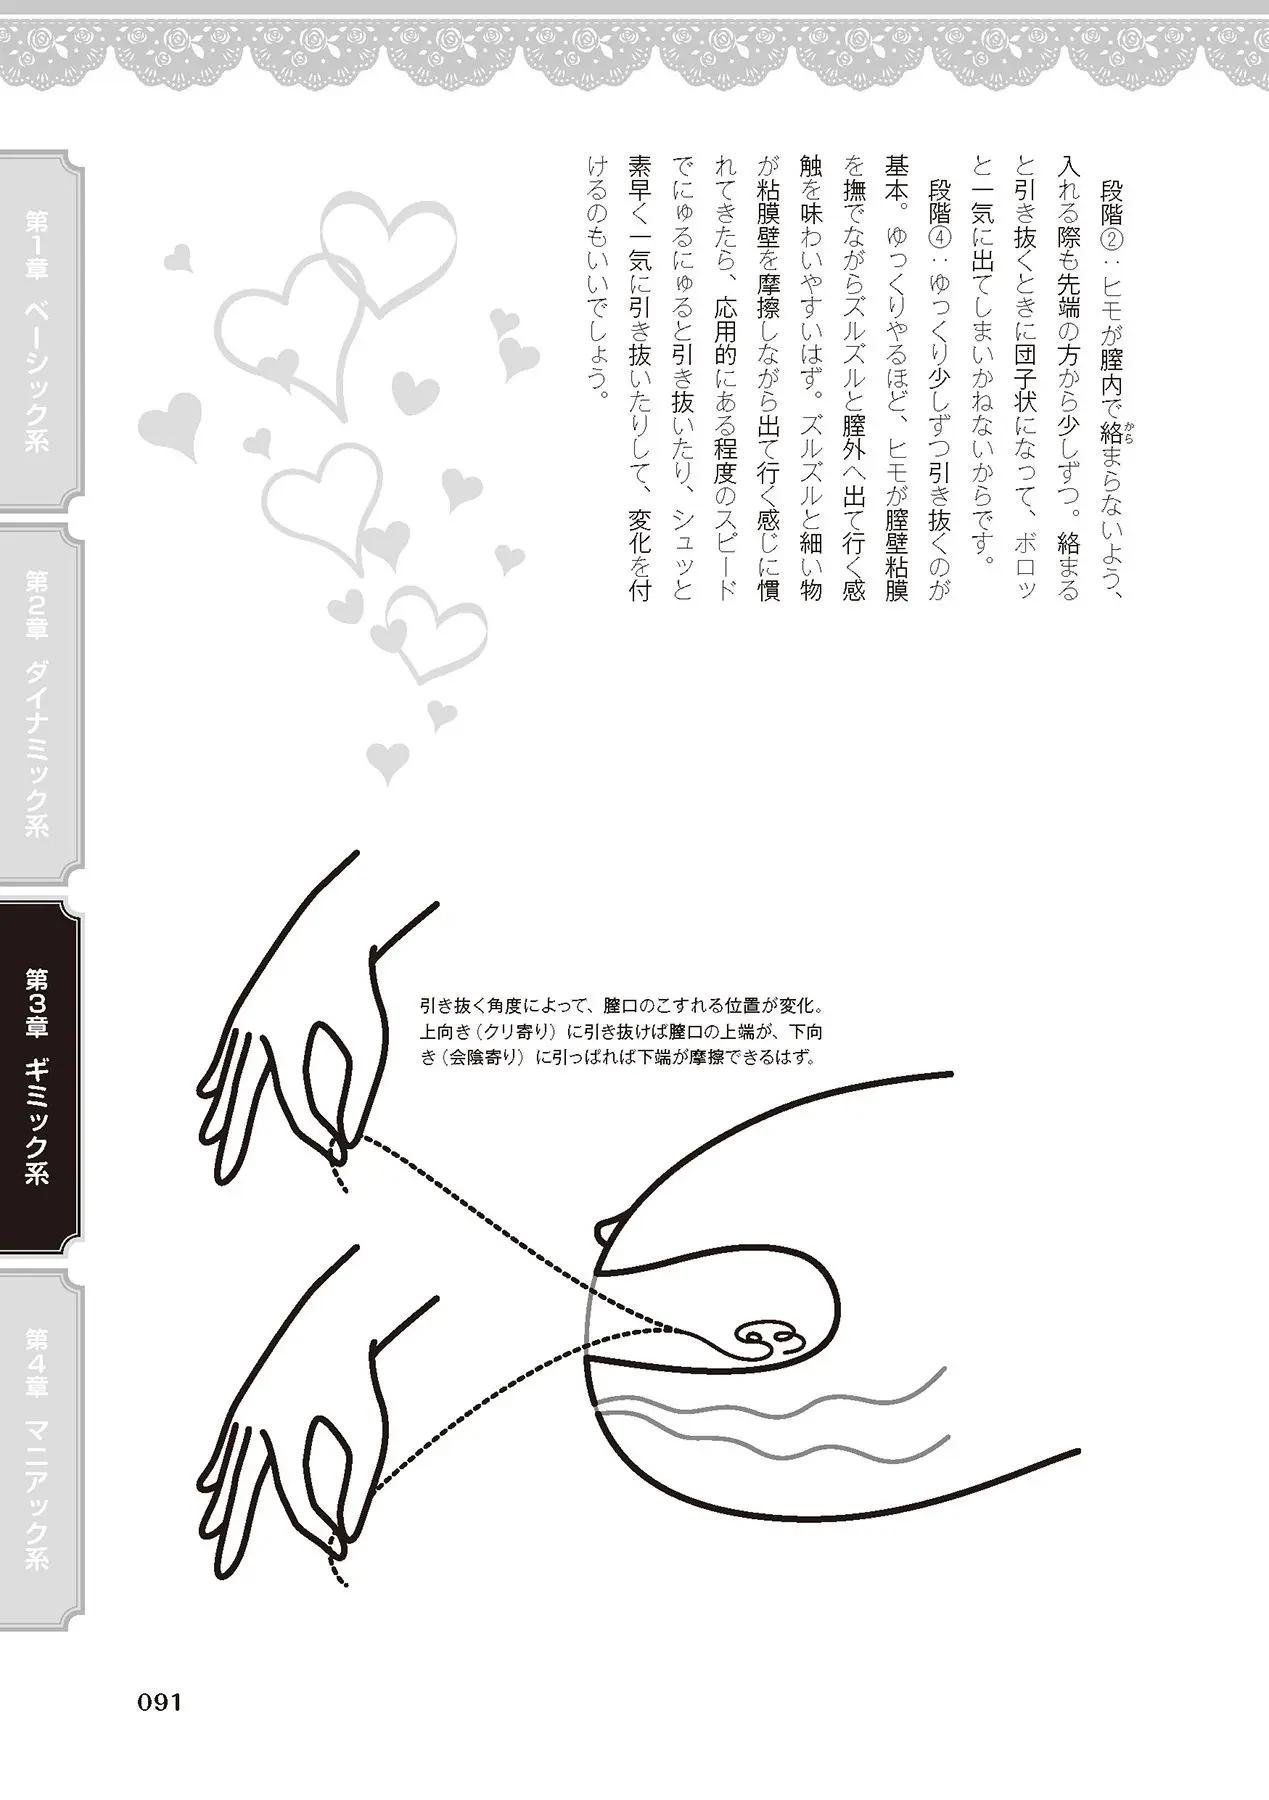 段階②：ヒモが膣内で絡まらないよう、
から
入れる際も先端の方から少しずつ。絡まる
と引き抜くときに団子状になって、ボロッ
と一気に出てしまいかねないからです。
段階④：ゆっくり少しずつ引き抜くのが
基本。ゆっくりやるほど、ヒモが膣壁粘膜
を撫でながらズルズルと膣外へ出て行く感
触を味わいやすいはず。ズルズルと細い物
が粘膜壁を摩擦しながら出て行く感じに慣
れてきたら、応用的にある程度のスピード
でにゅるにゅると引き抜いたり、シュッと
素早く一気に引き抜いたりして、変化を付
けるのもいいでしょう。
引き抜く角度によって、膣口のこすれる位置が変化。
上向き（クリ寄り）に引き抜けば膣口の上端が、下向
き（会陰寄り）に引っぱれば下端が摩擦できるはず。
第1章 ベーシック系
第2章 ダイナミック系
第3章 ギミック系
第4章 マニアック系
091